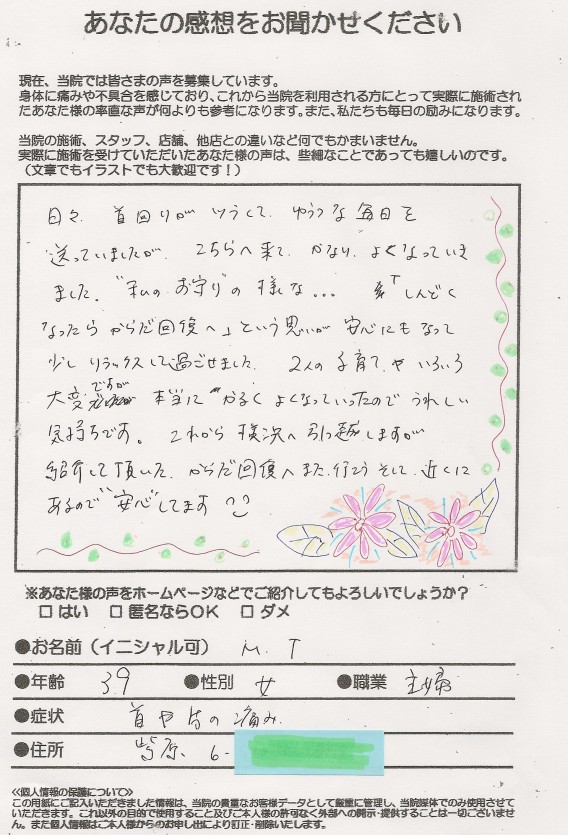 あなたの感想をお聞かせください
現在、当院では皆さまの声を募集しています。
身体に痛みや不具合を感じており、これから当院を利用される方にとって実際に施術され
たあなた様の率直な声が何よりも参考になります。また、私たちも毎日の励みになります。
当院の施術、スタッフ、店舗、他店との違いなど何でもかまいません。
実際に施術を受けていただいたあなた様の声は、些細なことであっても嬉しいのです。
（文章でもイラストでも大歓迎です！）
日々、首回りがツラくて、ゆううつな毎日を
送っていましたが、こちらへ来て、かなり、よくなっていき
ました。"私のお守り"の様な... 「しんどく
なったらからだ回復へ」という思いが安心にもなって
少しリラックスして過ごせました。2人の子育てやいろいろ
大変ですが 本当に"かるくよくなっていったのでうれしい
気持ちです。これから横浜へ引っ越しますが
紹介して頂いた、からだ回復へまた行こうそして、近くに
あるので"安心"してます
※あなた様の声をホームページなどでご紹介してもよろしいでしょうか？
□ はい □ 匿名ならOK □ ダメ
●お名前（イニシャル可） M. T
●年齢 39 ●性別 女 ●職業 主婦
●症状 首や肩の痛み.
●住所 6-
≪個人情報の保護について≫
この用紙にご記入いただきました情報は、当院の貴重なお客様データとして厳重に管理し、当院媒体でのみ使用させて
いただきます。これ以外の目的で使用すること及びご本人様の許可なく外部への開示・提供することは一切ございませ
ん。また個人情報はご本人様からのお申し出により訂正・削除いたします。